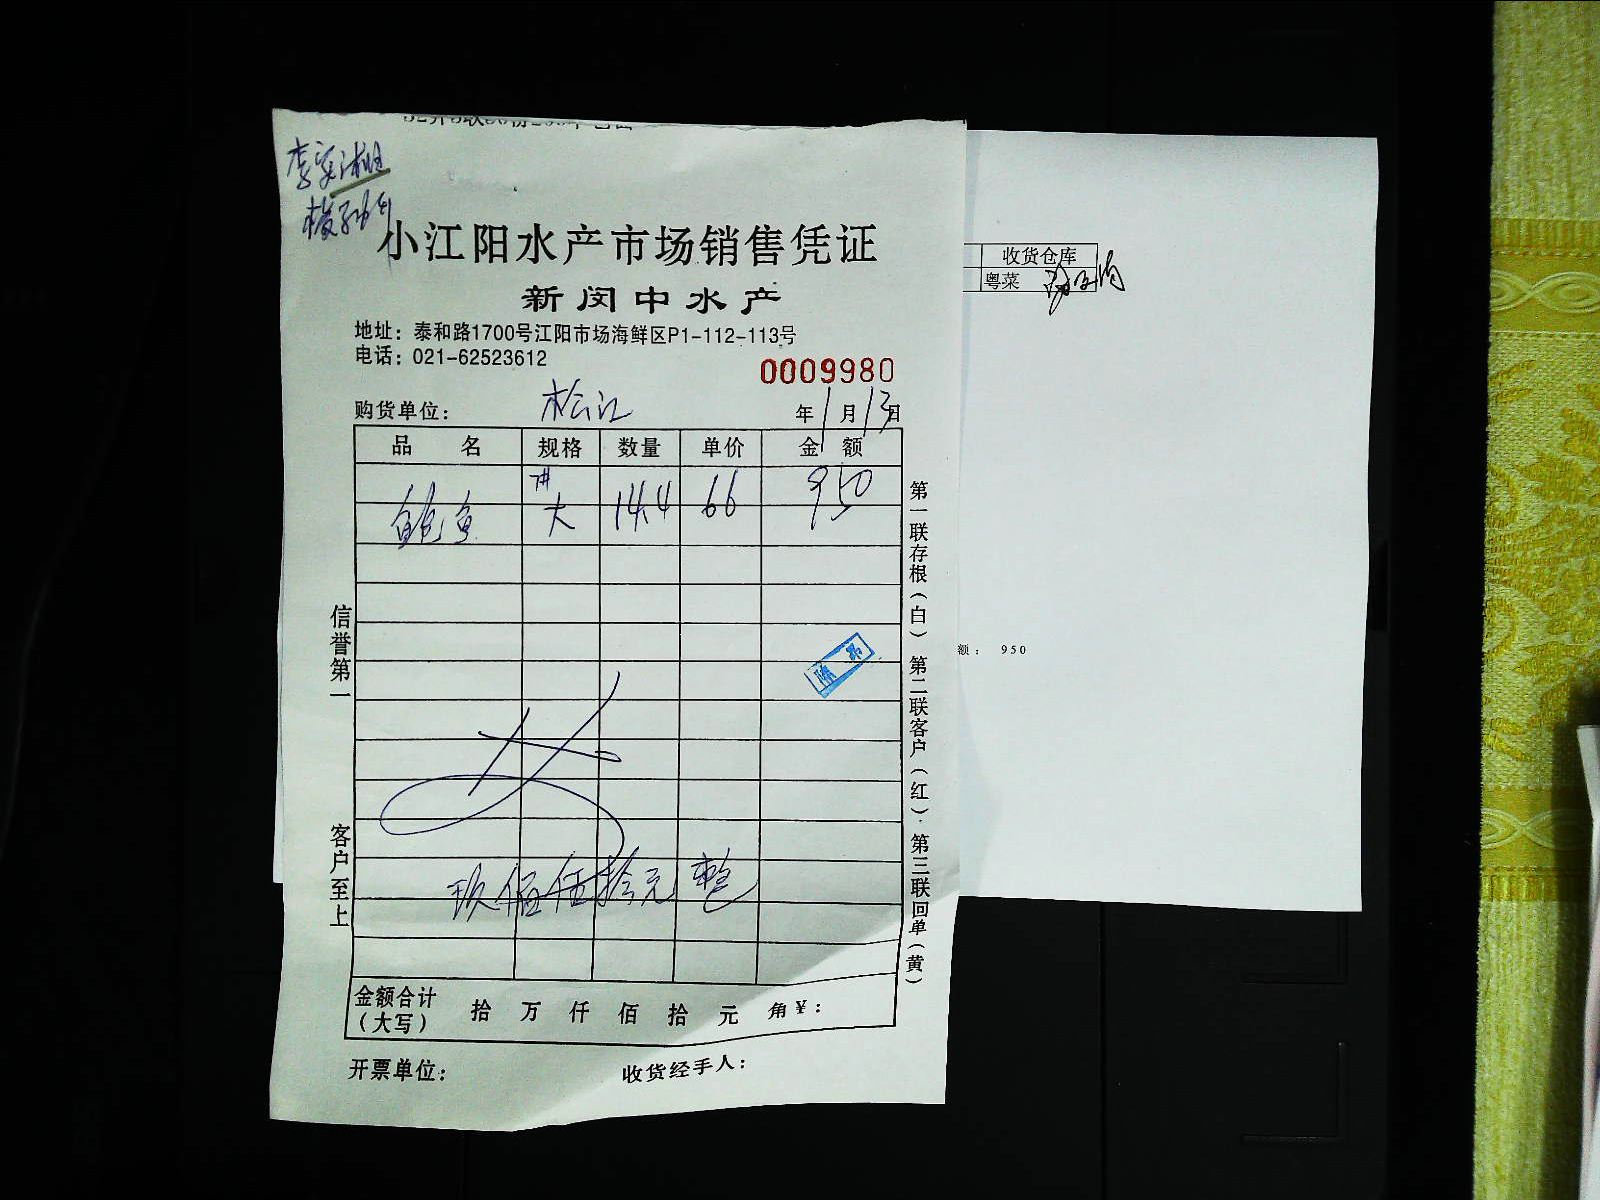 小江阳水产市场销售凭证
新闵中水产
地址：泰和路1700号江阳市场海鲜区P1-112-113号
电话：021-62523612
0009980
购货单位： 松江 年 1 月 13 日
品 名 规格 数量 单价 金 额
鲍鱼 7# 大 14.4 66 950
玖佰伍拾元整
金额合计（大写） 拾 万 仟 佰 拾 元 角 ¥：
开票单位： 收货经手人：
信誉第一
客户至上
第一联存根（白）第二联客户（红）.第三联回单（黄）
收货仓库
粤菜
额： 950